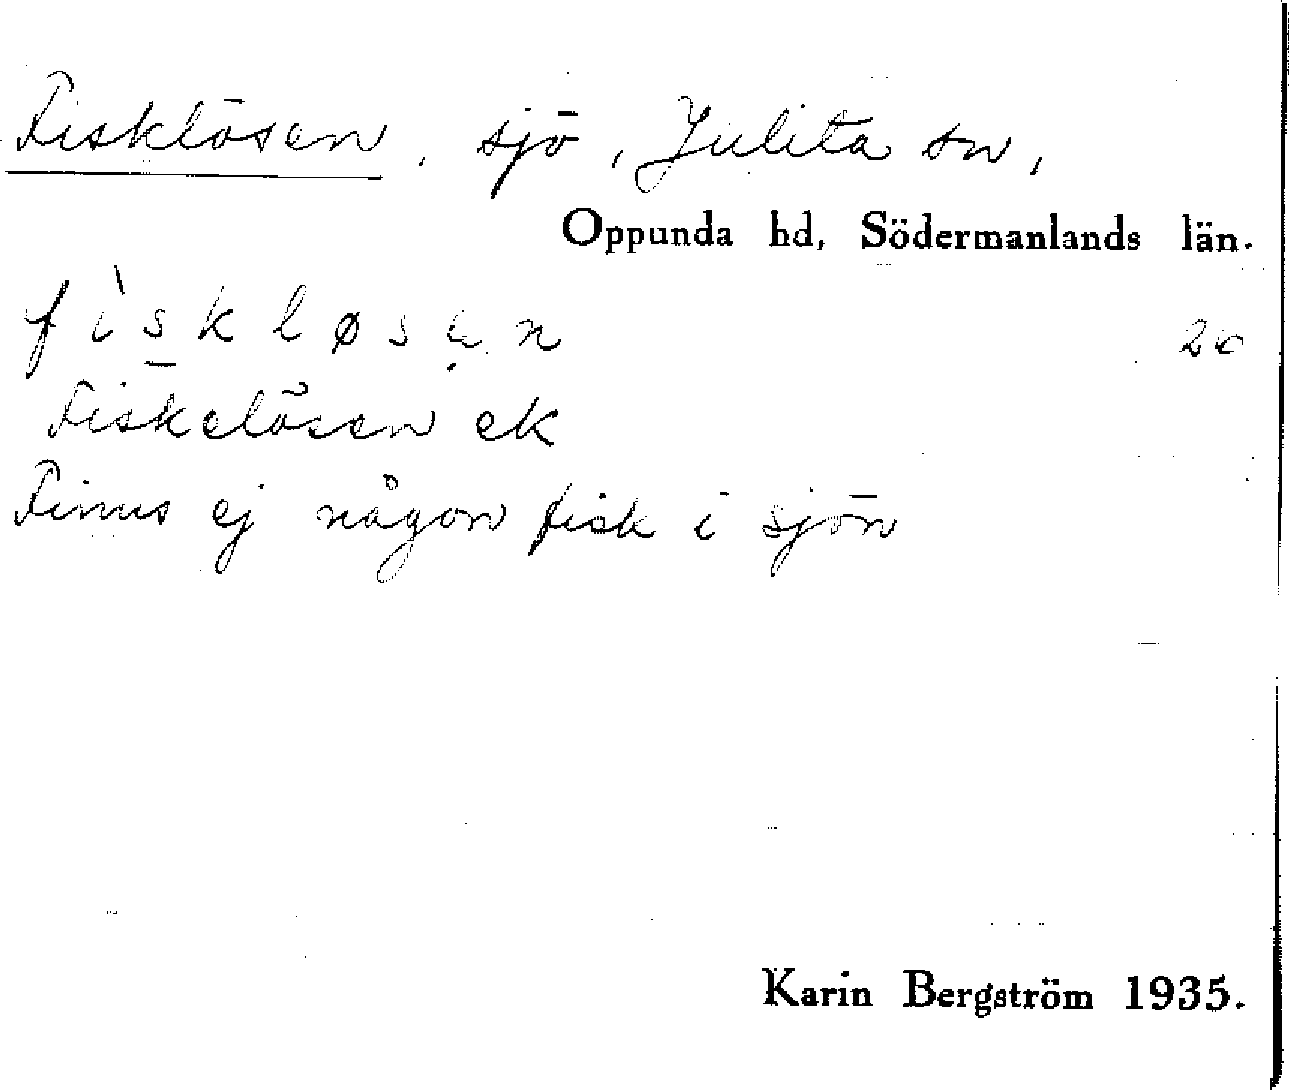 Fisklösen, sjö, Julita sn,
Oppunda hd, Södermanlands län.
fìskløsen
Fiskelösen ek
Finns ej någon fisk i sjön
Karin Bergström 1935.